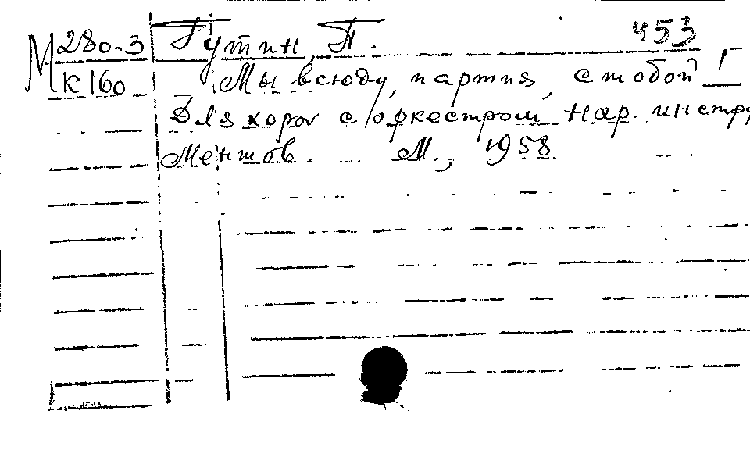 М 280-3 Гутин, П. 453
К160 Мы всюду, партия, с тобой!
Для хора с оркестром нар. инстру
ментов. М., 1958